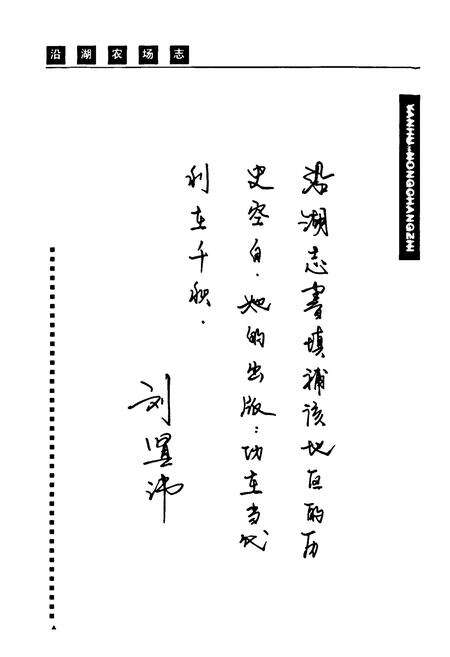 沿湖农场志
YANHU NONGCHANGZHI
沿湖志書填補该地区的历
史空白．她的出版：功在当代
利在千秋．
刘